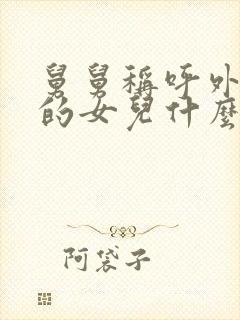 舅舅稱呼外
的女兒什麼
阿袋子